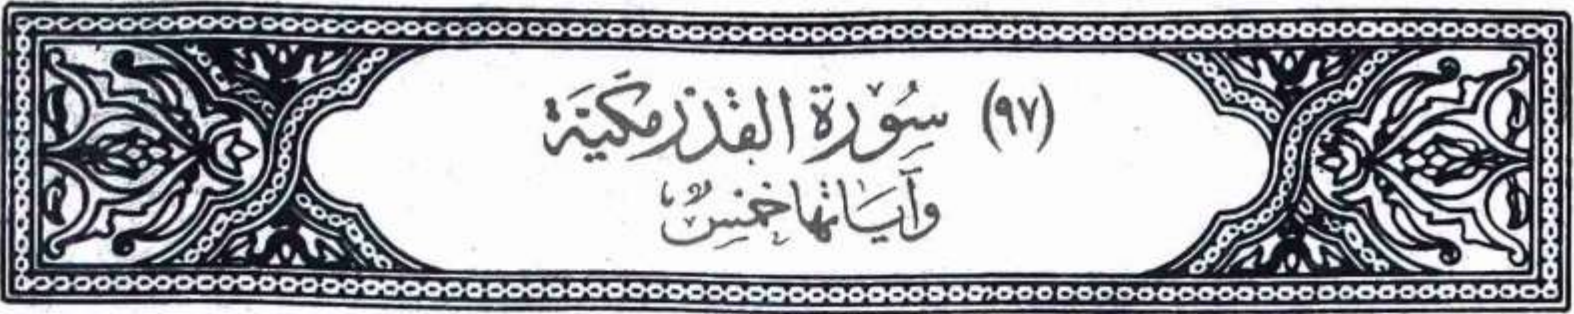 (٩٧) سُورَة القَدْر مَكيَّة
وَآيَاتُهَا خَمْسٌ